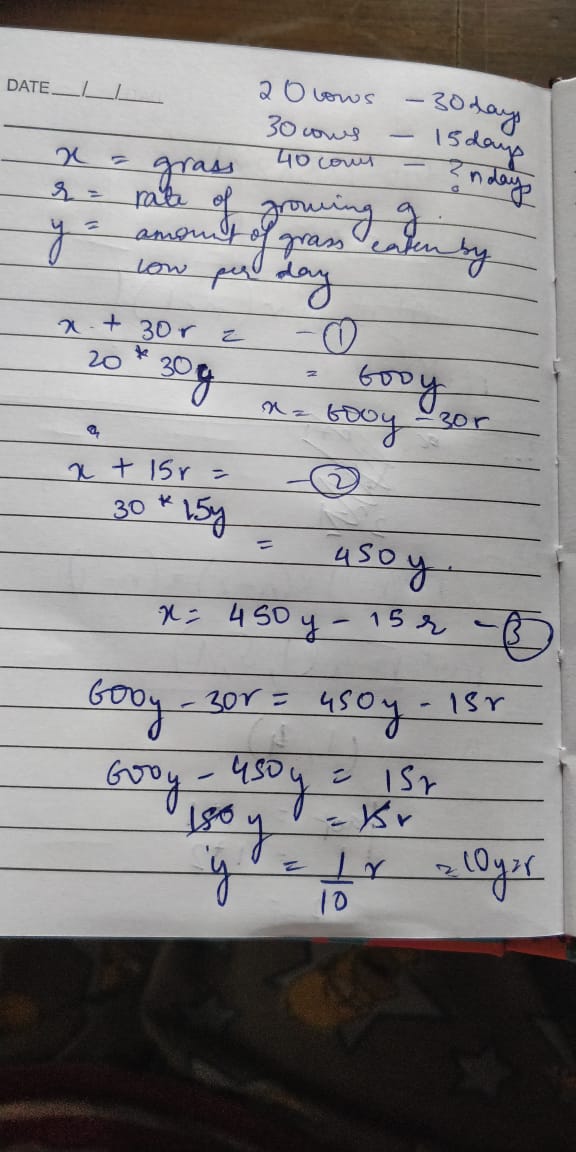 DATE__/__/__
20 cows - 30 days
30 cows - 15 days
40 cows - ? n days
x = grass
r = rate of growing g.
y = amount of grass eaten by
cow per day
x + 30r = - ①
20 * 30y = 600y
x = 600y - 30r
x + 15r = - ②
30 * 15y
= 450y.
x = 450y - 15r - ③
600y - 30r = 450y - 15r
600y - 450y = 15r
150y = 15r
y = 1/10 r = 10y=r